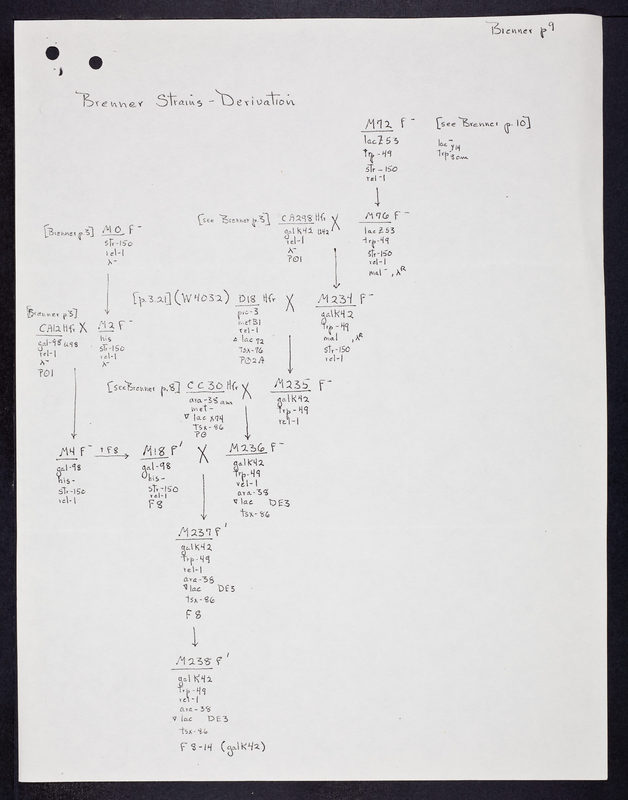 Brenner p9
Brenner Strains - Derivation
M72 F⁻ [see Brenner p.10]
lacZ53
trp-49
str-150
rel-1
lac⁻y14
trp3am
[see Brenner p.3] CA298 Hfr X M76 F⁻
galK42
rel-1
λ⁻
PO1
lacZ53
trp-49
str-150
rel-1
mal⁻, λR
[Brenner p.3] M0 F⁻
str-150
rel-1
λ⁻
[p.321] (W4032) D18 Hfr X M234 F⁻
pro-3
metB1
rel-1
lac 72
tsx-76
PO2A
galK42
trp-49
mal, λR
str-150
rel-1
Brenner p3]
CA12 Hfr X M2 F⁻
gal-98 U98
rel-1
λ⁻
PO1
his
str-150
rel-1
λ⁻
[see Brenner p.8] CC30 Hfr X M235 F⁻
ara-38am
met-
∇ lac X74
tsx-86
PO
galK42
trp-49
rel-1
M4 F⁻ ↑F8 M18 F' X M236 F⁻
gal-98
his-
str-150
rel-1
gal-98
his-
str-150
rel-1
F8
galK42
trp-49
rel-1
ara-38
∇ lac DE3
tsx-86
M237 F'
galK42
trp-49
rel-1
ara-38
∇ lac DE3
tsx-86
F8
M238 F'
galK42
trp-49
rel-1
ara-38
∇ lac DE3
tsx-86
F8-14 (galK42)